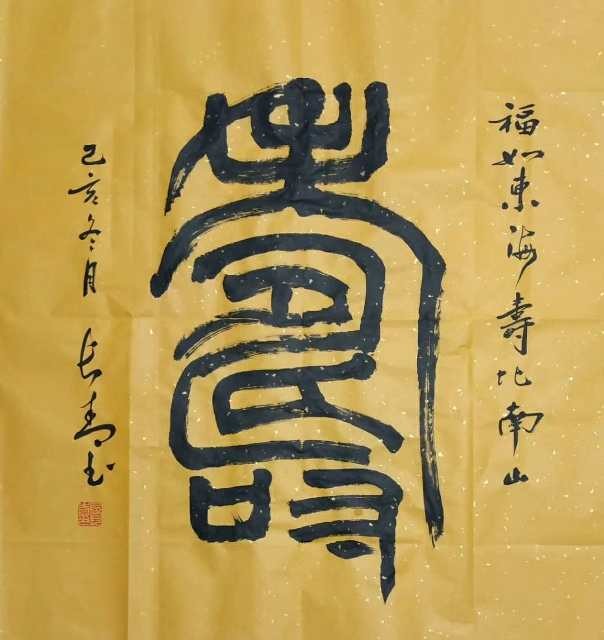 福如東海壽比南山
壽
己亥冬月 长青书